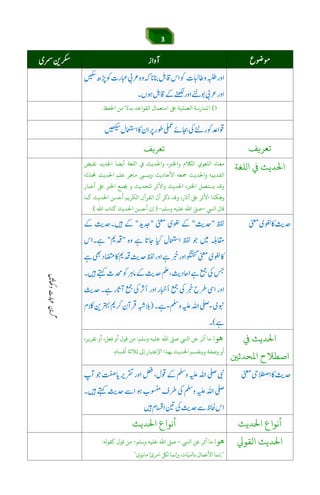 3
موضوع
آواز
سکرین سمری
اور طلبہ وطالبات کو اس قابل بنانا کہ وہ عربی عبارت کو پڑھ سکیں
اور عربی بولنے، سننے اور لکھنے کے قابل ہوں۔
3) الممارسة العملية على استعمال القواعد بدلا من الحفظ.
قواعد کو رٹنے کی بجائے عملی طور پر ان کا استعمال سیکھیں
تعریف
تعریف
الحديث في اللغة
معناه اللغوي الكلام والخبر، والحديث في اللغة أيضا الجديد نقيض
القديم والحديث جمعه الأحاديث ويسمى ماهر علم الحديث محدثا،
وقد يستعمل الخبر الحديث والأثر للحديث و يجمع الخبر على أخبار
وهكذا الأثر على آثار، وقد ذكر أن القرآن الكريم أحسن الحديث كما
قال النبي -صلى الله عليه وسلم- ( إن أحسن الحديث كتاب الله )
حدیث کا لغوی معنی
لفظ "حدیث" کے لغوی معنی "جدید" کے ہیں۔ حدیث کے
مقابلہ میں جو لفظ استعمال کیا جاتا ہے وہ "قدیم" ہے۔ اس
کا لغوی معنی گفتگو اور خبر ہے اور لفظ حدیث قدیم کا متضاد بھی ہے
جس کی جمع احادیث ہے، علم حدیث کے ماہر کو محدث کہتے ہیں۔
اور اسی طرح خبر کی جمع اخبار اور اثر کی جمع آثار ہے۔ حدیث
نبوی -صلی اللہ علیہ وسلم- ہے۔ (بلاشبہ قرآن کریم بہترین کلام
ہے)۔
الحديث في اصطلاح المحدثين
هو: ما أثر عن النبي صلى الله عليه وسلم: من قول أو فعل، أو تقرير،
أو وصفه وينقسم الحديث بهذا الاعتبار إلى ثلاثة أقسام.
حدیث کا اصطلاحی معنی
نبی صلی اللہ علیہ وسلم کے قول، فعل اور تقریر یا صفت جو آپ
صلی اللہ علیہ وسلم کی طرف منسوب ہو اسے حدیث کہتے ہیں۔
اس لحاظ سے حدیث کی تین اقسام ہیں
أنواع الحديث
أنواع الحديث
الحديث القولي
هو: ما أثر عن النبي – صلى الله عليه وسلم- من قول كقوله:
"إنما الأعمال بالنيات وإنما لكل امرئ مانوى"